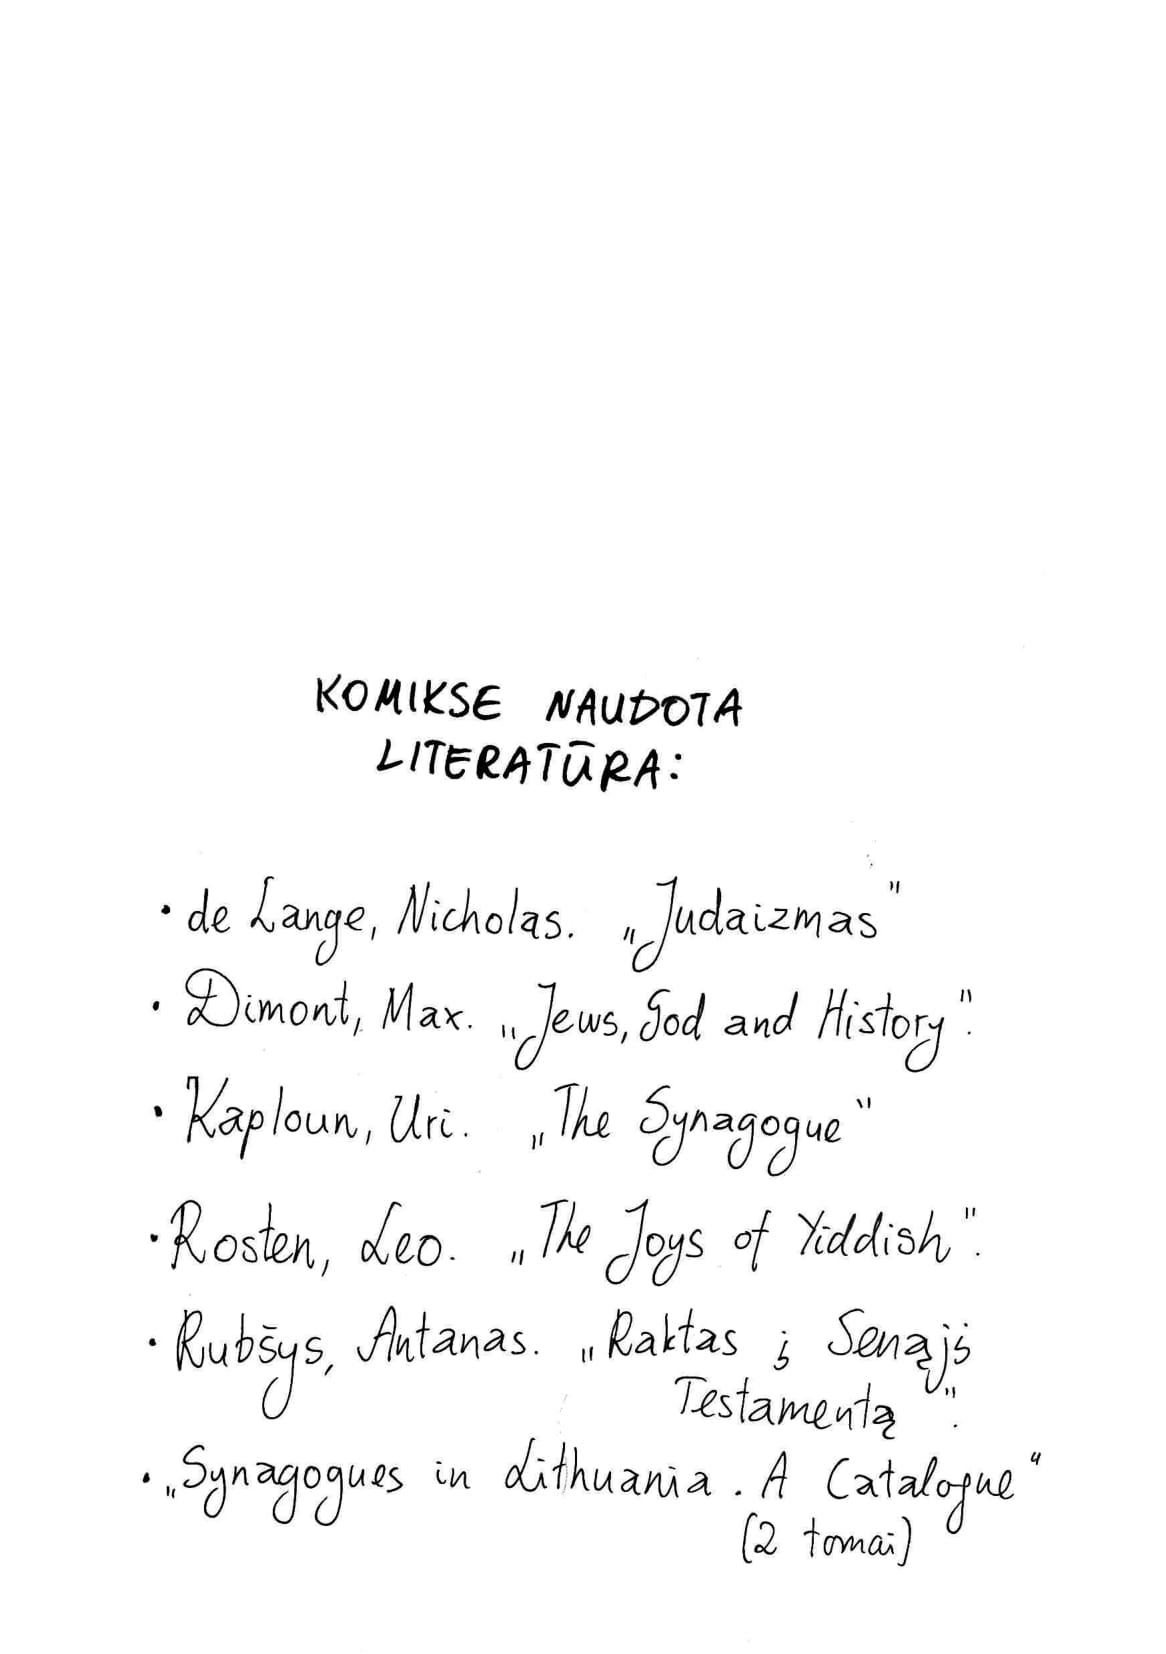 KOMIKSE NAUDOTA
LITERATŪRA:
• de Lange, Nicholas. „Judaizmas"
• Dimont, Max. „Jews, God and History".
• Kaploun, Uri. „The Synagogue"
• Rosten, Leo. „The Joys of Yiddish".
• Rubšys, Antanas. „Raktas į Senąjį
Testamentą".
• „Synagogues in Lithuania. A Catalogue"
(2 tomai)